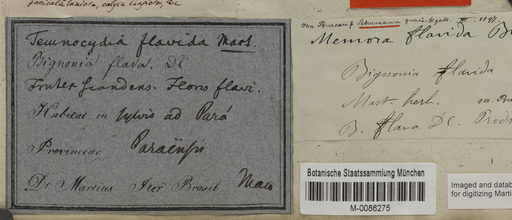 paniculatâ laxiora, calyce longiore, &c
Temnocydia flavida Mart
Bignonia flava. DC
Frutex scandens. Flores flavi.
Habitat in sylvis ad Pará
Provinciae Paraënsis
Dr Martius Iter Brasil. Maio
von Bureau & Schumann zurückges. III. 1897.
Memora flavida
Bignonia flavida
Mart. herb.
B. flava DC. Prodr
Botanische Staatssammlung München
M-0086275
Imaged and datab
for digitizing Marti